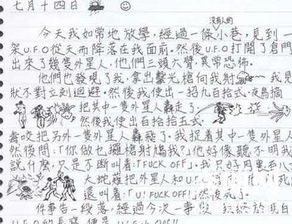 七月十四日
沒有人的
今天我如常地放學，經過一條小巷，見到一
架U.F.O從天而降落在我面前。然後UFO打開了倉門
出來了幾隻外星人，他們三頭六臂，異常恐怖。
他們也發現了我，拿出擊光槍向我射 我見
狀不對立刻迴避，然後我使出一招九百拾式，攻鳥摘
把其中一隻外星人轟走了，
然後我使出百拾拾五式，
毒咬把另外一隻外星人轟飛了。我捉着其中一隻外星人
然後問:「你做乜攞槍射鳩我?」他好像聽不明我
說什麼，只是不斷叫着「FUCK OFF」，我只好用
大蛇薙把外星人知U.F.O
還叫着「U! FUCK OFF!」
件事告一段落，經過今次一事